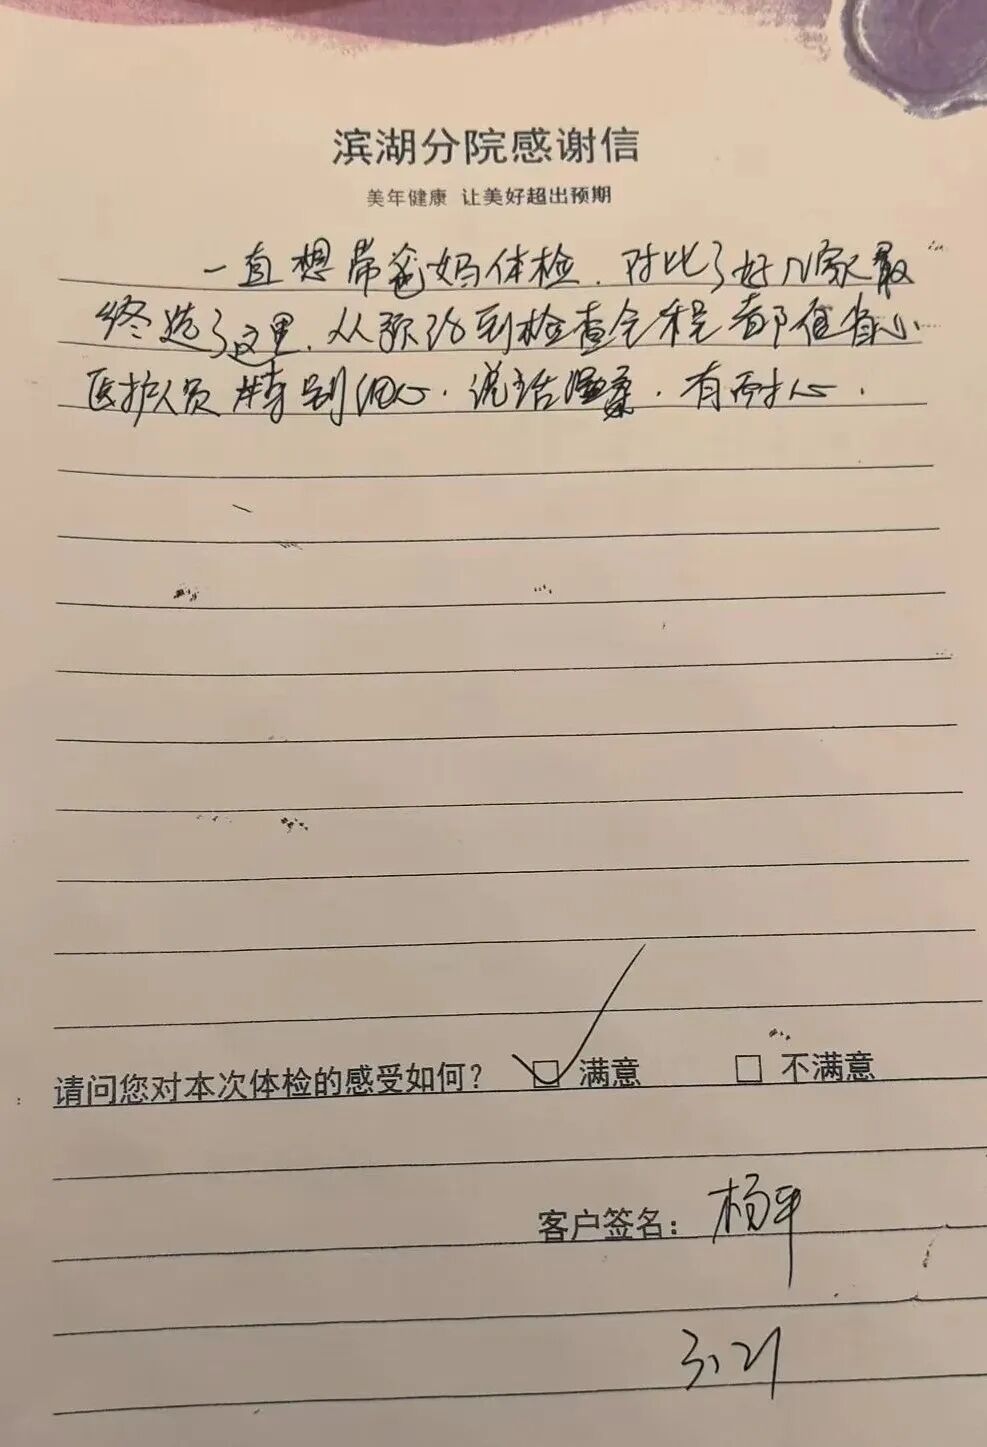 滨湖分院感谢信
美年健康 让美好超出预期
一直想带爸妈体检.对比了好几家最
终选了这里.从预约到检查全程都值省心
医护人员特别细心.说话温柔.有耐心.
请问您对本次体检的感受如何? ☑ 满意 □ 不满意
客户签名: 杨平
3.21